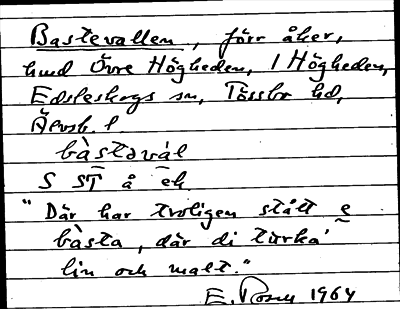 Bastevallen, förr åker,
hmd Övre Högheden, 1 Högheden,
Edsleskogs sn, Tössbo hd,
Älvsb. l.
bàstəvál
S ST å ek
"Där har troligen stått e
bàsta, där di túrka'
lin och malt."
E. 1964